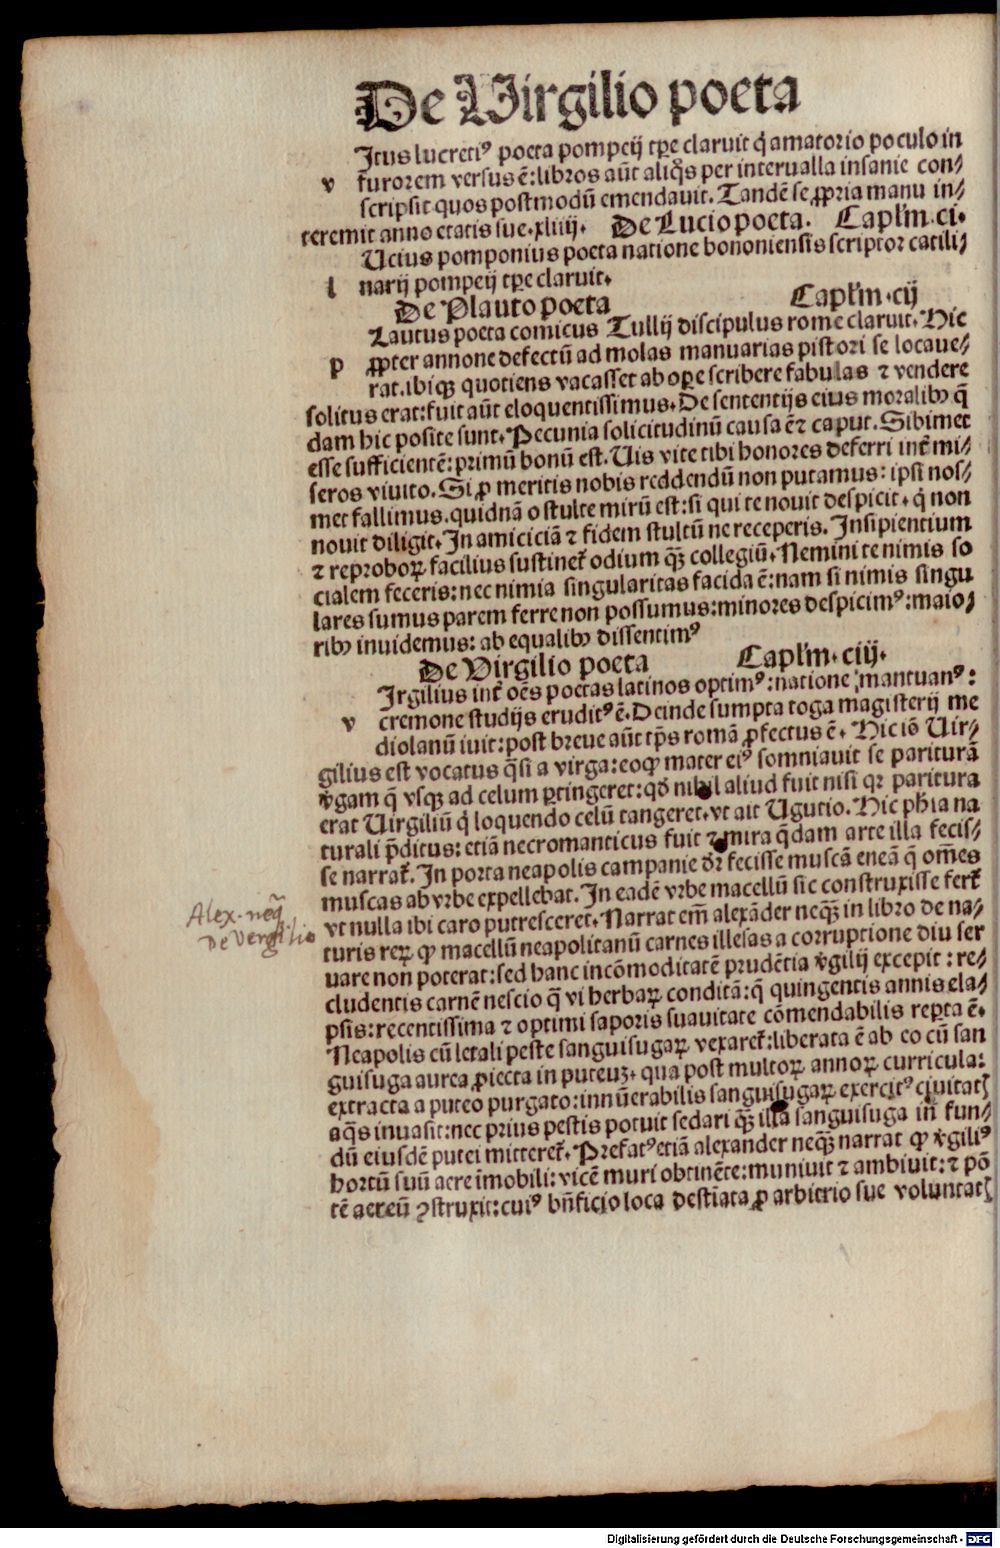 De Virgilio poeta
Itus lucretiꝰ poeta pompeij tꝑe claruit q̇ amatorio poculo in
v furorem versus ē: libros aūt aliq̊s per interualla insanie con⸗
scripsit quos postmodū emendauit. Tandē se ꝓpria manu in⸗
teremit anno etatis sue .xliiij. De Lucio poeta. Capl'm .ci.
Ucius pomponius poeta natione bononiensis scriptor catili⸗
l narij pompeij tꝑe claruit.
De Plauto poeta Capl'm .cij
Lautus poeta comicus Tullij discipulus rome claruit. Hic
p ꝓpter annone defectū ad molas manuarias pistori se locaue⸗
rat. ibiqꝫ quotiens vacasset ab oꝑe scribere fabulas ⁊ vendere
solitus erat: fuit aūt eloquentissimus. De sententijs eius moralibꝫ q̄
dam hic posite sunt. Pecunia solicitudinū causa ē⁊ caput. Sibimet
esse sufficientē: primū bonū est. Uis vite tibi honores deferri int̄ mi⸗
seros viuito. Si ꝓ meritis nobis reddendū non putamus: ipsi nos⸗
met fallimus. quidnā o stulte mirū est: si qui te nouit despicit. q̇ non
nouit diligit. In amiciciā ⁊ fidem stultū ne receperis. Insipientium
⁊ reproboꝝ facilius sustinet̄ odium qꝫ̄ collegiū. Nemini te nimis so
cialem feceris: nec nimia singularitas facida ē: nam si nimis singu
lares sumus parem ferre non possumus: minores despicimꝰ: maio⸗
ribꝫ inuidemus: ab equalibꝫ dissentimꝰ
De Virgilio poeta Capl'm .ciij.
Irgilius int̄ oēs poetas latinos optimꝰ: natione mantuanꝰ:
v cremone studijs eruditꝰ ē. Deinde sumpta toga magisterij me
diolanū iuit: post breue aūt tꝑs romā ꝓfectus ē. Hic iō Uir⸗
gilius est vocatus q̄si a virga: eo qꝙ mater eiꝰ somniauit se pariturā
v̓gam q̄ vsqꝫ ad celum ꝑtingeret: qd̓ nihil aliud fuit nisi qꝛ paritura
erat Uirgiliū q̇ loquendo celū tangeret. vt ait Ugutio. Hic ph̄ia na
turali p̄ditus: etiā necromanticus fuit ⁊ mira q̄dam arte illa fecis⸗
se narrat̄. In porta neapolis campanie dr̄ fecisse muscā eneā q̄ om̄es
muscas ab vrbe expellebat. In eadē vrbe macellū sic construxisse fert̄
vt nulla ibi caro putresceret. Narrat em̄ alexāder neqꝫ̄ in libro de na⸗
Alex. neq̄
De Vergilio
turis reꝝ ꝙ macellū neapolitanū carnes illesas a corruptione diu ser
uare non poterat: sed hanc incōmoditatē prudētia v̓gilij excepit: re⸗
cludentis carnē nescio q̄ vi herbaꝝ conditā: q̄ quingentis annis ela⸗
psis: recentissima ⁊ optimi saporis suauitate cōmendabilis reꝑta ē.
Neapolis cū letali peste sanguisugaꝝ vexaret̄: liberata ē ab eo cū san
guisuga aurea ꝓiecta in puteuꝫ. qua post multoꝝ annoꝝ curricula:
extracta a puteo purgato: innūerabilis sanguisugaꝝ exercitꝰ ciuitatꝭ
aq̄s inuasit: nec prius pestis potuit sedari qꝫ̄ illa sanguisuga in fun⸗
dū eiusdē putei mitteret̄. Prefatꝰ etiā alexander neqꝫ̄ narrat ꝙ v̓giliꝰ
hortū suū aere īmobili: vicē muri obtinēte: muniuit ⁊ ambiuit: ⁊ pō
tē aereū ꝯstruxit: cuiꝰ bn̄ficio loca destīata ꝓ arbitrio sue voluntatꝭ
Digitalisierung gefördert durch die Deutsche Forschungsgemeinschaft - DFG